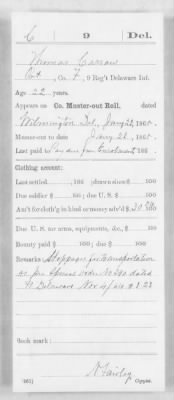 C 9 Del.
Thomas Carrow
Pvt, Co. F, 9 Reg't Delaware Inf.
Age 22 years.
Appears on Co. Muster-out Roll, dated
Wilmington Del, Jany 22, 1865.
Muster-out to date Jany 22, 1865.
Last paid to 186 .
Clothing account:
Last settled 186 ; drawn since $ 100
Due soldier $ 100; due U. S. $ 100
Am't for cloth'g in kind or money adv'd $
Due U. S. for arms, equipments, &c., $ 100
Bounty paid $ 100; due $ 100
Remarks: Stoppage for transportation
as per Special order No dated
Delaware Nov
Book mark:
(361) Copyist.